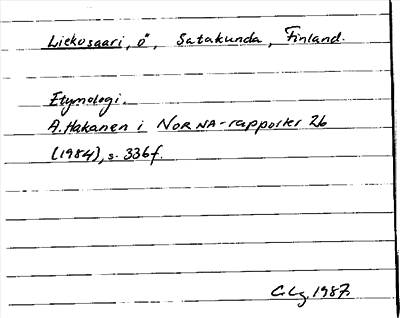 Liekosaari, ö", Satakunda, Finland.
Etymologi.
A. Hakanen i NORNA-rapporter 26
(1984), s. 336f.
C. Lg. 1987.